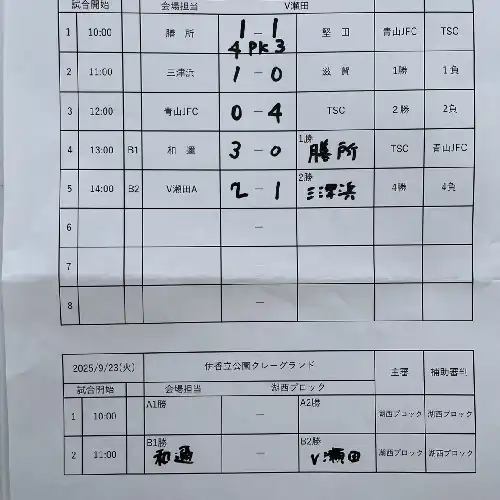 試合開始 会場担当 V瀬田
1 10:00 膳所 1 - 1 堅田 青山JFC TSC
4 PK 3
2 11:00 三津浜 1 - 0 滋賀 1勝 1負
3 12:00 青山JFC 0 - 4 TSC 2勝 2負
4 13:00 B1 和邇 3 - 0 1勝 膳所 TSC 青山JFC
5 14:00 B2 V瀬田A 2 - 1 2勝 三津浜 4勝 4負
6 -
7 -
8 -
2025/9/23(火) 伊香立公園クレーグランド 主審 補助審判
試合開始 会場担当 湖西ブロック
1 10:00 A1勝 - A2勝 湖西ブロック 湖西ブロック
2 11:00 B1勝 和邇 - B2勝 V瀬田 湖西ブロック 湖西ブロック